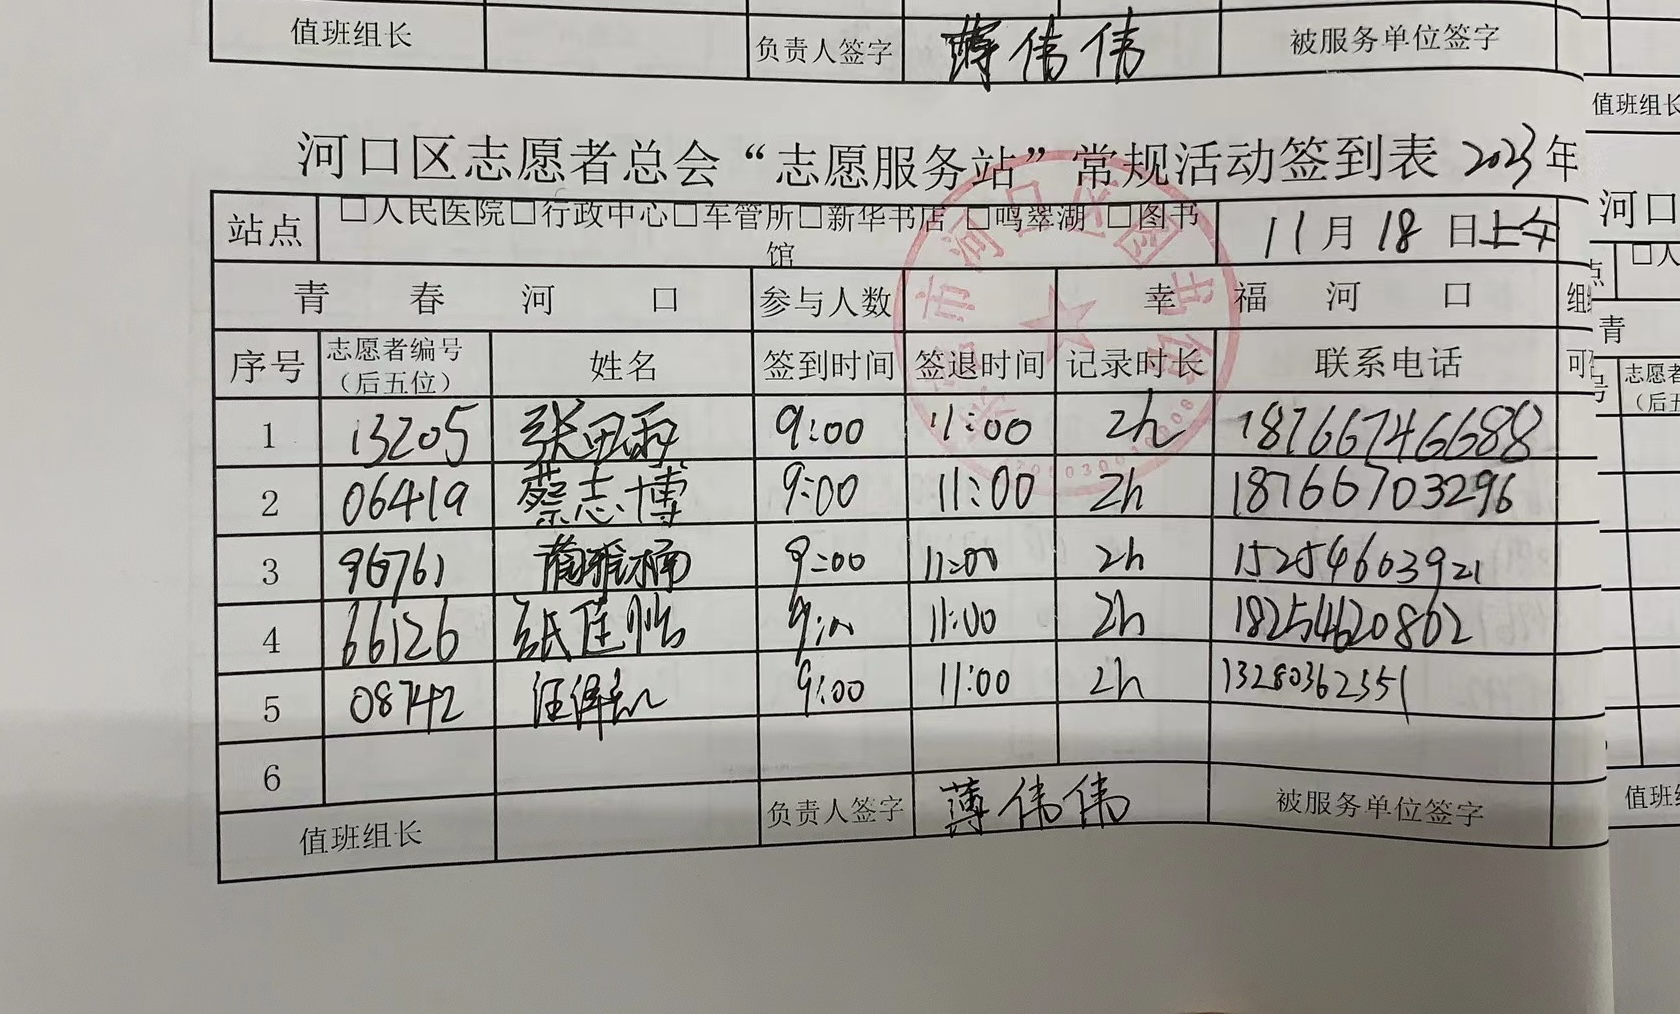 值班组长 负责人签字 薄伟伟 被服务单位签字
值班组长
河口区志愿者总会“志愿服务站”常规活动签到表 2023年
站点 □人民医院□行政中心□车管所□新华书店 □鸣翠湖 □图书馆 11月18日上午
河口
青春河口 参与人数 幸福河口
青
序号 志愿者编号（后五位） 姓名 签到时间 签退时间 记录时长 联系电话
1 13205 张思雨 9:00 11:00 2h 18766746688
2 06419 蔡志博 9:00 11:00 2h 18766703296
3 96761 9:00 11:00 2h 15254603921
4 66126 9:00 11:00 2h 18254620802
5 08742 汪 9:00 11:00 2h 13280362351
6
值班组长 负责人签字 薄伟伟 被服务单位签字